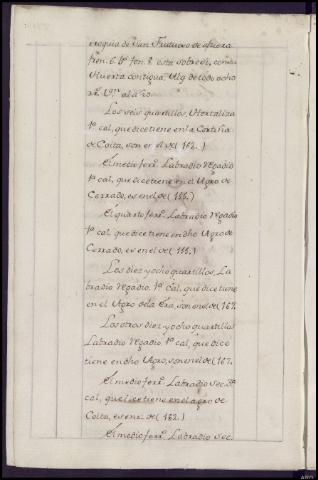 rroquia de San Fructuoso de afuera
fren. 6. bs. fon. 8. está sobre sí, con su
Huerta contigua, Alq. de todo ocho
rs. Vn. al año.
Los seis quartillos, Hortaliza
1ª cal, que dice tiene en la Cortiña
de Coita, son en el de (162.)
El medio ferr. Labradio regadio
1ª cal, que dice tiene en el Agro de
Cerrado, es en el de (155.)
El quarto ferr. Labradio regadio
1ª cal que dice tiene en dho Agro de
Cerrado, es en el de (155.)
Los diez y ocho quartillos, La
bradio regadio. 1ª cal, que dice tiene
en el Agro de la Era, son en el de 167.
Los otros diez y ocho quartillos
Labradio regadio 1ª cal, que dice
tiene en dho Agro, son en el de (167.
El medio ferr. Labradio sec. 2ª
cal, que dice tiene en el agro de
Coita, es en el de (162.)
El medio ferr. Labradio sec.